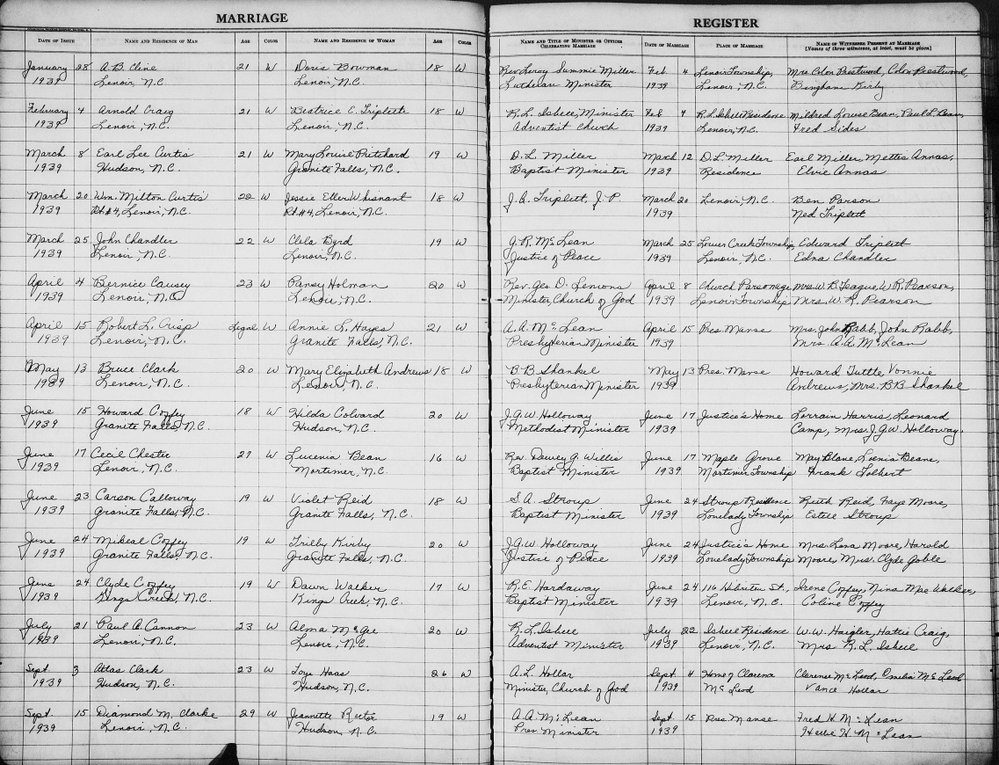 MARRIAGE
DATE OF ISSUE NAME AND RESIDENCE OF MAN AGE COLOR NAME AND RESIDENCE OF WOMAN AGE COLOR
January 28 A.B. Cline 21 W Doris Bowman 18 W
1939 Lenoir, N.C. Lenoir, N.C.
February 4 Arnold Craig 21 W Beatrice E. Triplett 18 W
1939 Lenoir, N.C. Lenoir, N.C.
March 8 Earl Lee Curtis 21 W Mary Louise Pritchard 19 W
1939 Hudson, N.C. Granite Falls, N.C.
March 20 Wm. Milton Curtis 22 W Jessie Ellen Whisnant 18 W
1939 Rt #4, Lenoir, N.C. Rt #4, Lenoir, N.C.
March 25 John Chandler 22 W Clela Byrd 19 W
1939 Lenoir, N.C. Lenoir, N.C.
April 4 Bernice Causey 23 W Pansy Holman 20 W
1939 Lenoir, N.C. Lenoir, N.C.
April 15 Robert L. Crisp Legal W Annie L. Hayes 21 W
1939 Lenoir, N.C. Granite Falls, N.C.
May 13 Bruce Clark 20 W Mary Elizabeth Andrews 18 W
1939 Lenoir, N.C. Lenoir, N.C.
June 15 Howard Coffey 18 W Hilda Colvard 20 W
1939 Granite Falls, N.C. Hudson, N.C.
June 17 Cecil Chester W Bean 16 W
1939 Lenoir, N.C. Mortimer, N.C.
June 23 Carson Calloway 19 W Violet Reid 18 W
1939 Granite Falls, N.C. Granite Falls, N.C.
June 24 Mikeal Coffey 19 W Trilby Kirby 20 W
1939 Granite Falls, N.C. Granite Falls, N.C.
June 24 Clyde Coffey 19 W Dawn Walker 17 W
1939 Kings Creek, N.C. Kings Creek, N.C.
July 21 Paul A. Cannon 23 W Alma McGee 20 W
1939 Lenoir, N.C. Lenoir, N.C.
Sept 3 Atlas Clark 23 W Haas 26 W
1939 Hudson, N.C. Hudson, N.C.
Sept. 15 Diamond M. Clarke 29 W Jeannette Rector 19 W
1939 Lenoir, N.C. Hudson, N.C.
REGISTER
NAME AND TITLE OF MINISTER OR OFFICER CELEBRATING MARRIAGE DATE OF MARRIAGE PLACE OF MARRIAGE NAMES OF WITNESSES PRESENT AT MARRIAGE
(Names of three witnesses, at least, must be given.)
Rev. Leroy Miller Feb. 4 Lenoir Township, Mrs. Colon Prestwood, Colon Prestwood,
Lutheran Minister 1939 Lenoir, N.C. Bingham Kirby
R.L. Isbell, Minister Feb 4 R.L. Isbell Residence Mildred Louise Bean, Paul L. Bean,
Adventist Church 1939 Lenoir, N.C. Fred Sides
D.L. Miller March 12 D.L. Miller Earl Miller, Mettie Annas,
Baptist Minister 1939 Residence Elvie Annas
J.A. Triplett, J.P. March 20 Lenoir, N.C. Ben Parson
1939 Ned Triplett
J.R. McLean March 25 Lower Creek Township, Edward Triplett
Justice of Peace 1939 Lenoir, N.C. Edna Chandler
Rev. Geo. D. Lemons April 8 Church Parsonage Mrs. W.B. Teague, W.R. Pearson,
Minister, Church of God 1939 Lenoir Township Mrs. W.R. Pearson
A.A. McLean April 15 Pres. Manse Mrs. John Rabb, John Rabb,
Presbyterian Minister 1939 Mrs A.A. McLean
B.B. Shankel May 13 Pres. Manse Howard Tuttle, Vonnie
Presbyterian Minister 1939 Andrews, Mrs. B.B. Shankel
J.G.W. Holloway June 17 Justice's Home Lorrain Harris, Leonard
Methodist Minister 1939 Camp, Mrs. J.G.W. Holloway.
Rev Dewey G. Willis June 17 Maple Grove May Blane, Beane,
Baptist Minister 1939 Mortimer Township Frank Tolbert
S.A. Stroup June 24 Stroup Residence Ruth Reid, Faye Moore,
Baptist Minister 1939 Lovelady Township Estell Stroup
J.G.W. Holloway June 24 Justice's Home Mrs. Lona Moore, Harold
Justice of Peace 1939 Lovelady Township Moore, Mrs. Clyde Goble
R.E. Hardaway June 24 116 Hibriten St., Irene Coffey, Nina Mae Walker,
Baptist Minister 1939 Lenoir, N.C. Coline Coffey
R.L. Isbell July 22 Isbell Residence W.W. Haigler, Hattie Craig,
Adventist Minister 1939 Lenoir, N.C. Mrs R.L. Isbell
A.L. Hollar Sept. 4 Home of Clarence McLeod, Emelia McLeod
Minister, Church of God 1939 McLeod Vance Hollar
A.A. McLean Sept. 15 Pres Manse Fred H. McLean
Pres. Minister 1939 H. McLean